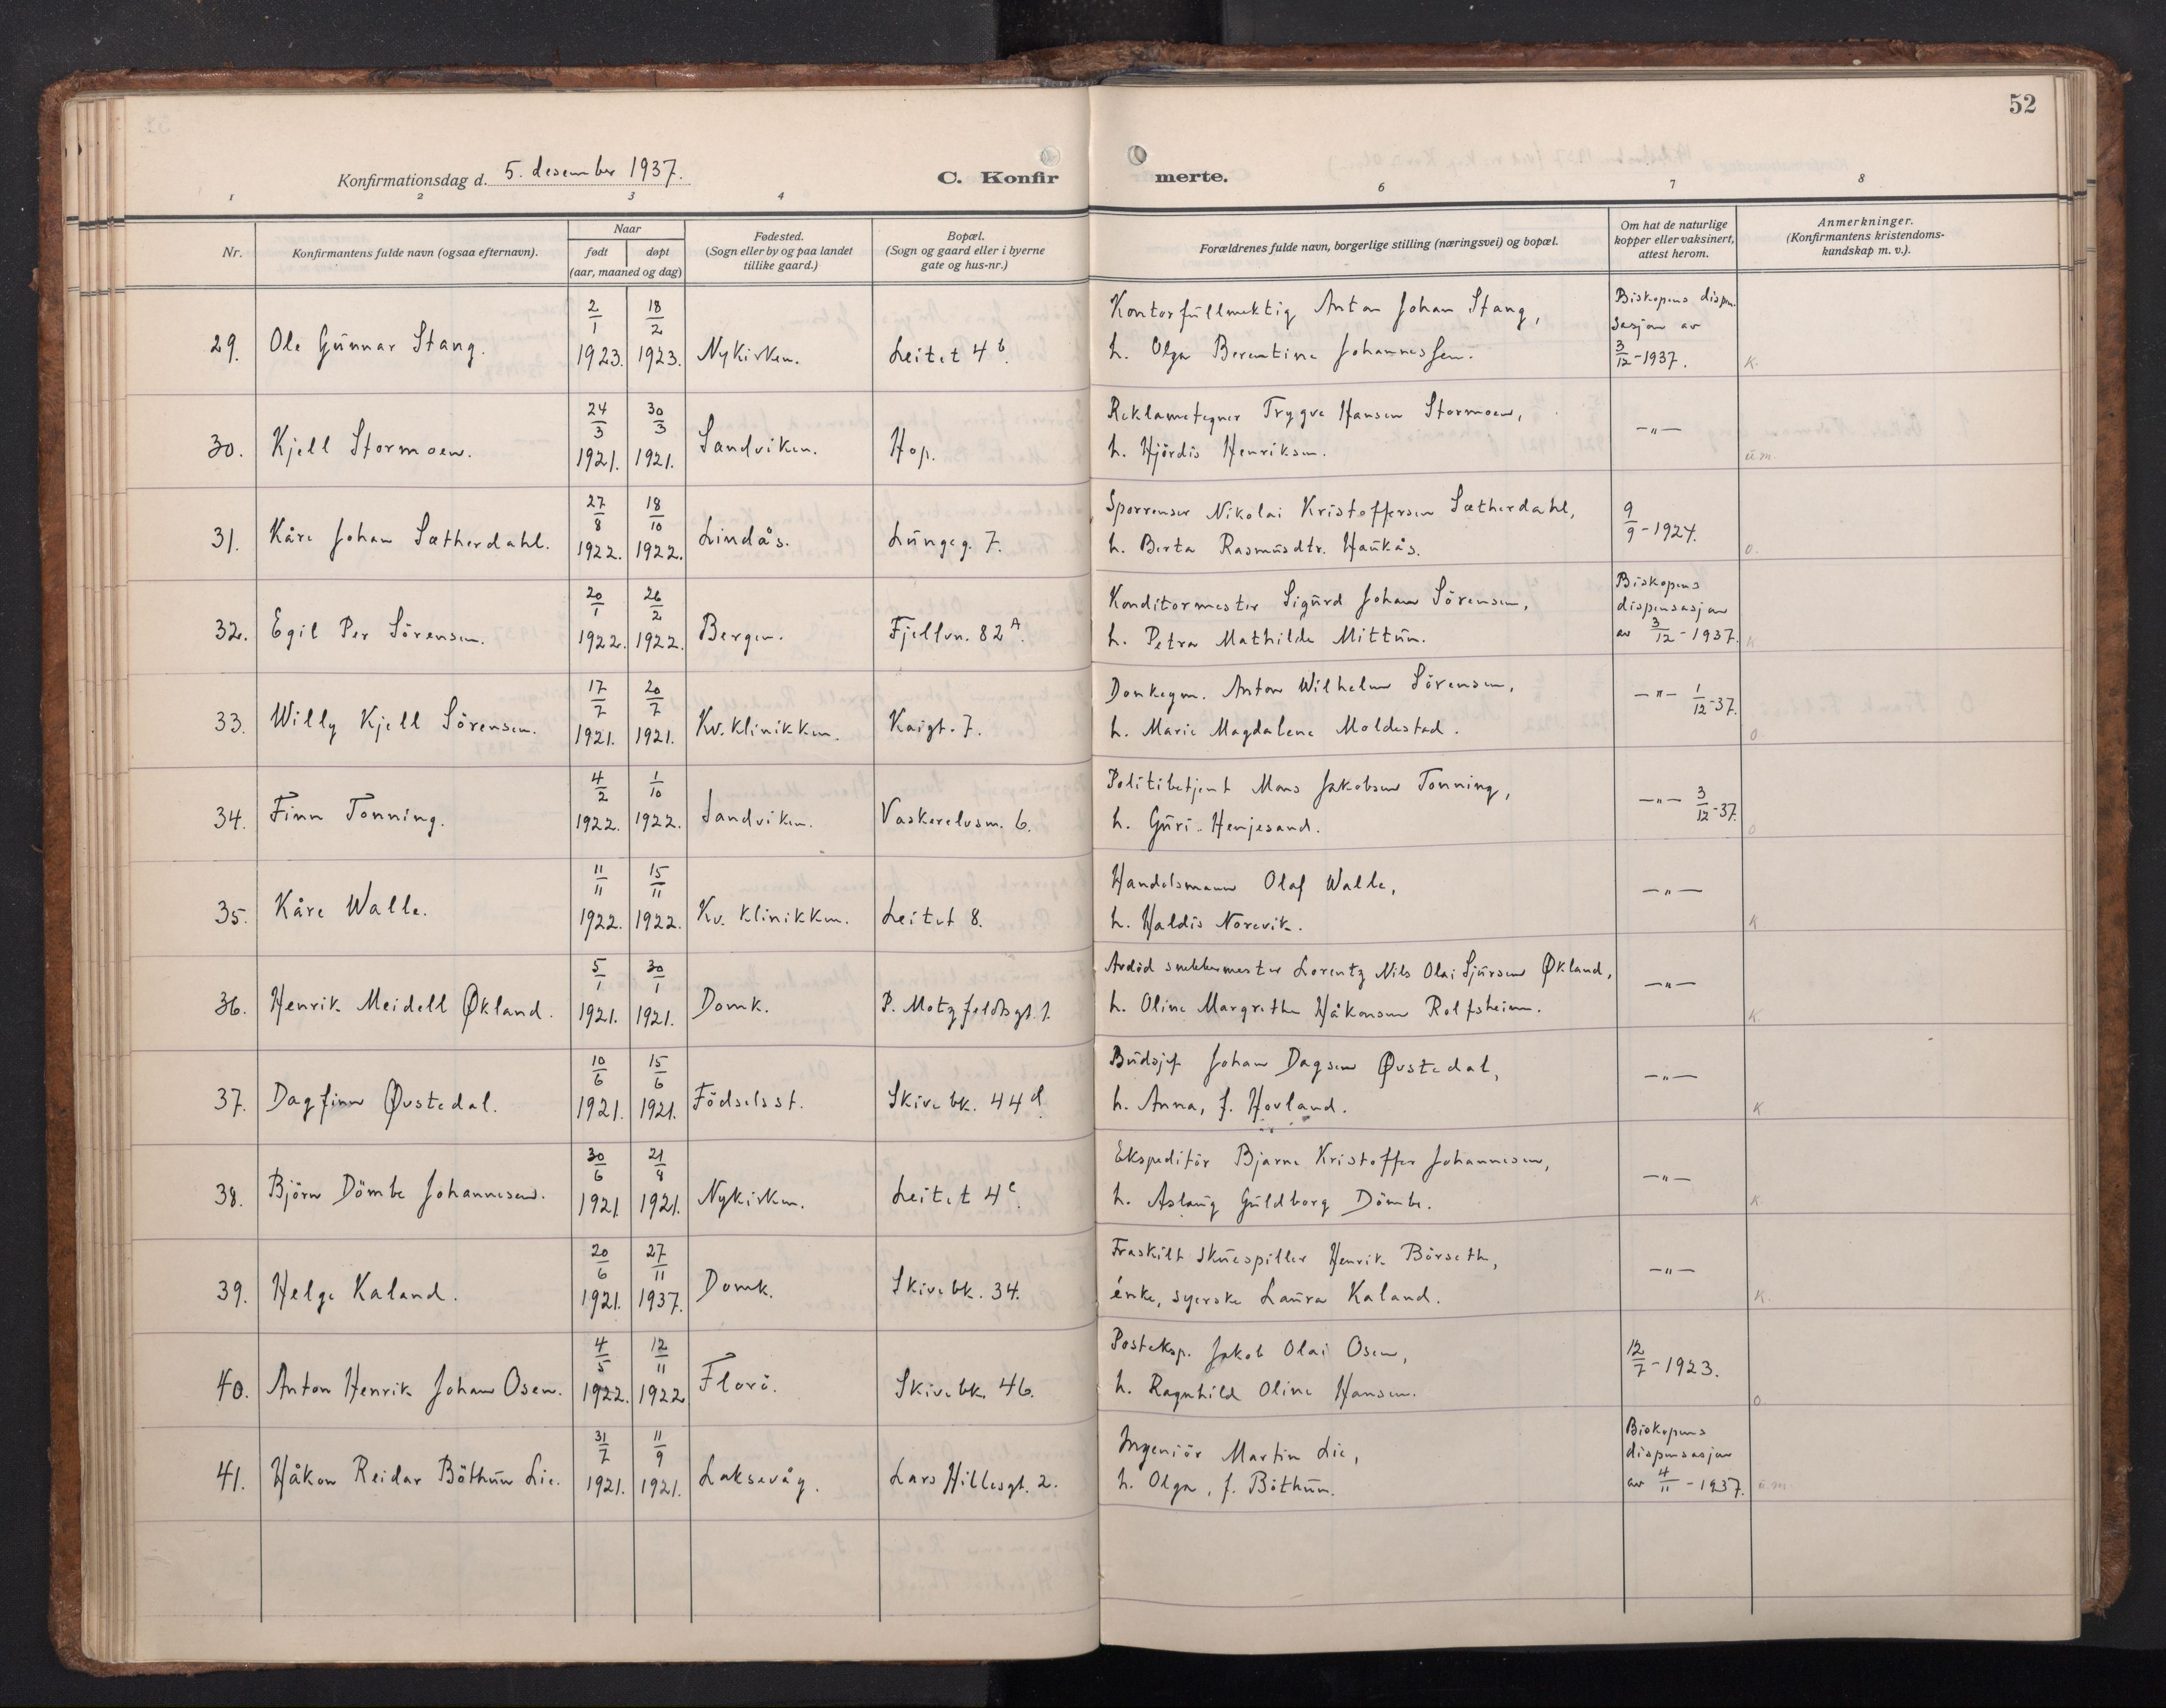 52
Konfirmationsdag d. 5. desember 1937.
C. Konfirmerte.
1 2 3 4 6 7 8
Nr. | Konfirmantens fulde navn (ogsaa efternavn). | Naar født døpt (aar, maaned og dag) | Fødested. (Sogn eller by og paa landet tillike gaard.) | Bopæl. (Sogn og gaard eller i byerne gate og hus-nr.) | Forældrenes fulde navn, borgerlige stilling (næringsvei) og bopæl. | Om hat de naturlige kopper eller vaksinert, attest herom. | Anmerkninger. (Konfirmantens kristendoms-kundskap m. v.).
29. Ole Gunnar Stang. 2/1 1923. 18/2 1923. Nykirken. Leitet 4 b. Kontorfullmektig Anton Johan Stang,
h. Olga Berentine Johannessen. Biskopens dispensasjon av 3/12-1937. K.
30. Kjell Stormoen. 24/3 1921. 30/3 1921. Sandviken. Hop. Reklametegner Trygve Hansen Stormoen,
h. Hjördis Henriksen. —"— u.m.
31. Kåre Johan Sætherdahl. 27/8 1922. 18/10 1922. Lindås. Lungeg. 7. Sporrenser Nikolai Kristoffersen Sætherdahl,
h. Berta Rasmusdtr. Haukås. 9/9-1924. O.
32. Egil Per Sörensen. 20/1 1922. 26/2 1922. Bergen. Fjellvn. 82 A. Konditormester Sigurd Johan Sörensen,
h. Petra Mathilde Mittun. Biskopens dispensasjon av 3/12-1937. K
33. Willy Kjell Sörensen. 17/7 1921. 20/7 1921. Kv. klinikken. Kaigt. 7. Donkeym. Anton Wilhelm Sörensen,
h. Marie Magdalene Moldestad. —"— 1/12-37. O
34. Finn Tonning. 4/2 1922. 1/10 1922. Sandviken. Vaskerelvsm. 6. Politibetjent Mons Jakobsen Tonning,
h. Guri Henjesand. —"— 3/12-37. O
35. Kåre Walle. 11/11 1922. 15/11 1922. Kv. klinikken. Leitet 8. Handelsmann Olaf Walle,
h. Haldis Norevik. —"— K
36. Henrik Meidell Økland. 5/1 1921. 30/1 1921. Domk. P. Motzfeldtsgt. 1. Avdöd snekkermester Lorentz Nils Olai Sjursen Økland,
h. Oline Margrethe Håkonsen Rolfsheim. —"— K.
37. Dagfinn Øvstedal. 10/6 1921. 15/6 1921. Födselsst. Skivebk. 44 d. Budsjef Johan Dagsen Øvstedal,
h. Anna, f. Hovland. —"— K
38. Björn Dömbe Johannesen. 30/6 1921. 21/8 1921. Nykirken. Leitet 4 c. Ekspeditör Bjarne Kristoffer Johannesen,
h. Aslaug Guldborg Dömbe. —"— K
39. Helge Kaland. 20/6 1921. 27/11 1937. Domk. Skivebk. 34. Fraskilt skuespiller Henrik Börseth,
enke, syerske Laura Kaland. —"— K.
40. Anton Henrik Johan Osen. 4/5 1922. 12/11 1922 Florö. Skivebk. 46. Posteksp. Jakob Olai Osen,
h. Ragnhild Oline Hansen. 12/7-1923. O
41. Håkon Reidar Böthun Lie. 31/7 1921. 11/9 1921. Laksevåg. Lars Hillesgt. 2. Ingeniör Martin Lie,
h. Olga, f. Böthun. Biskopens dispensasjon av 4/11-1937. u.m.